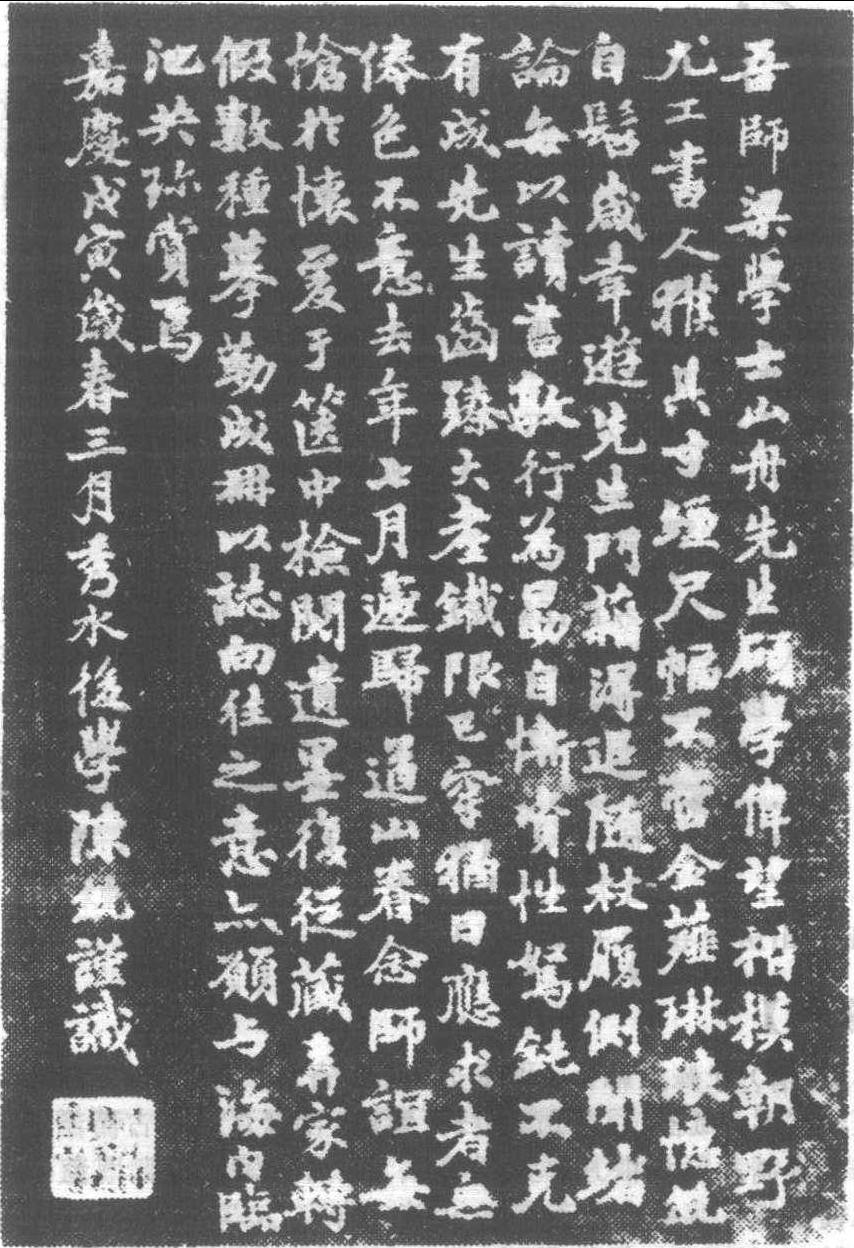 吾師梁學士山舟先生碩學偉望楷模朝野
尤工書人獲其寸縑尺幅不啻金薤琳瑯憶筑
自髫歲幸遊先生門藉得追隨杖履側聞緒
論每以讀書敦行為勗自慚資性駑鈍不克
有成先生齒臻大耋鐵限已穿猶日應求者無
倦色不意去年七月遽歸道山眷念師誼每
愴於懷爰于篋中檢閱遺墨復從藏弆家轉
假數種摹勒成冊以誌向往之意亦願与海內臨
池共珍賞焉
嘉慶戊寅歲春三月秀水後學陳筑謹識